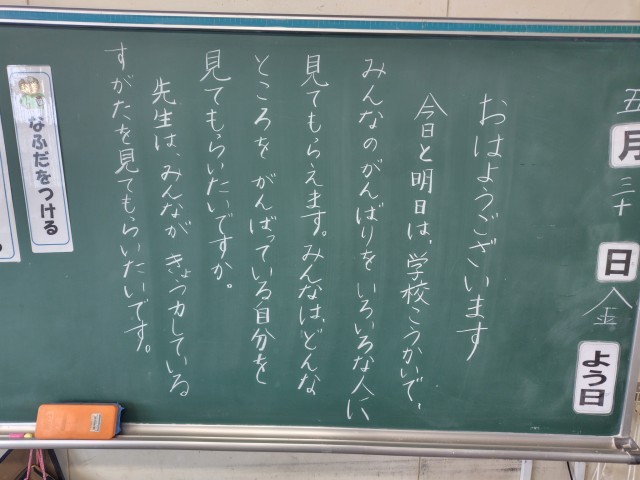 五月三十日金よう日
おはようございます
今日と明日は、学校こうかいで、
みんなのがんばりをいろいろな人に
見てもらえます。みんなは、どんな
ところをがんばっている自分を
見てもらいたいですか。
先生は、みんながきょう力している
すがたを見てもらいたいです。
なふだをつける